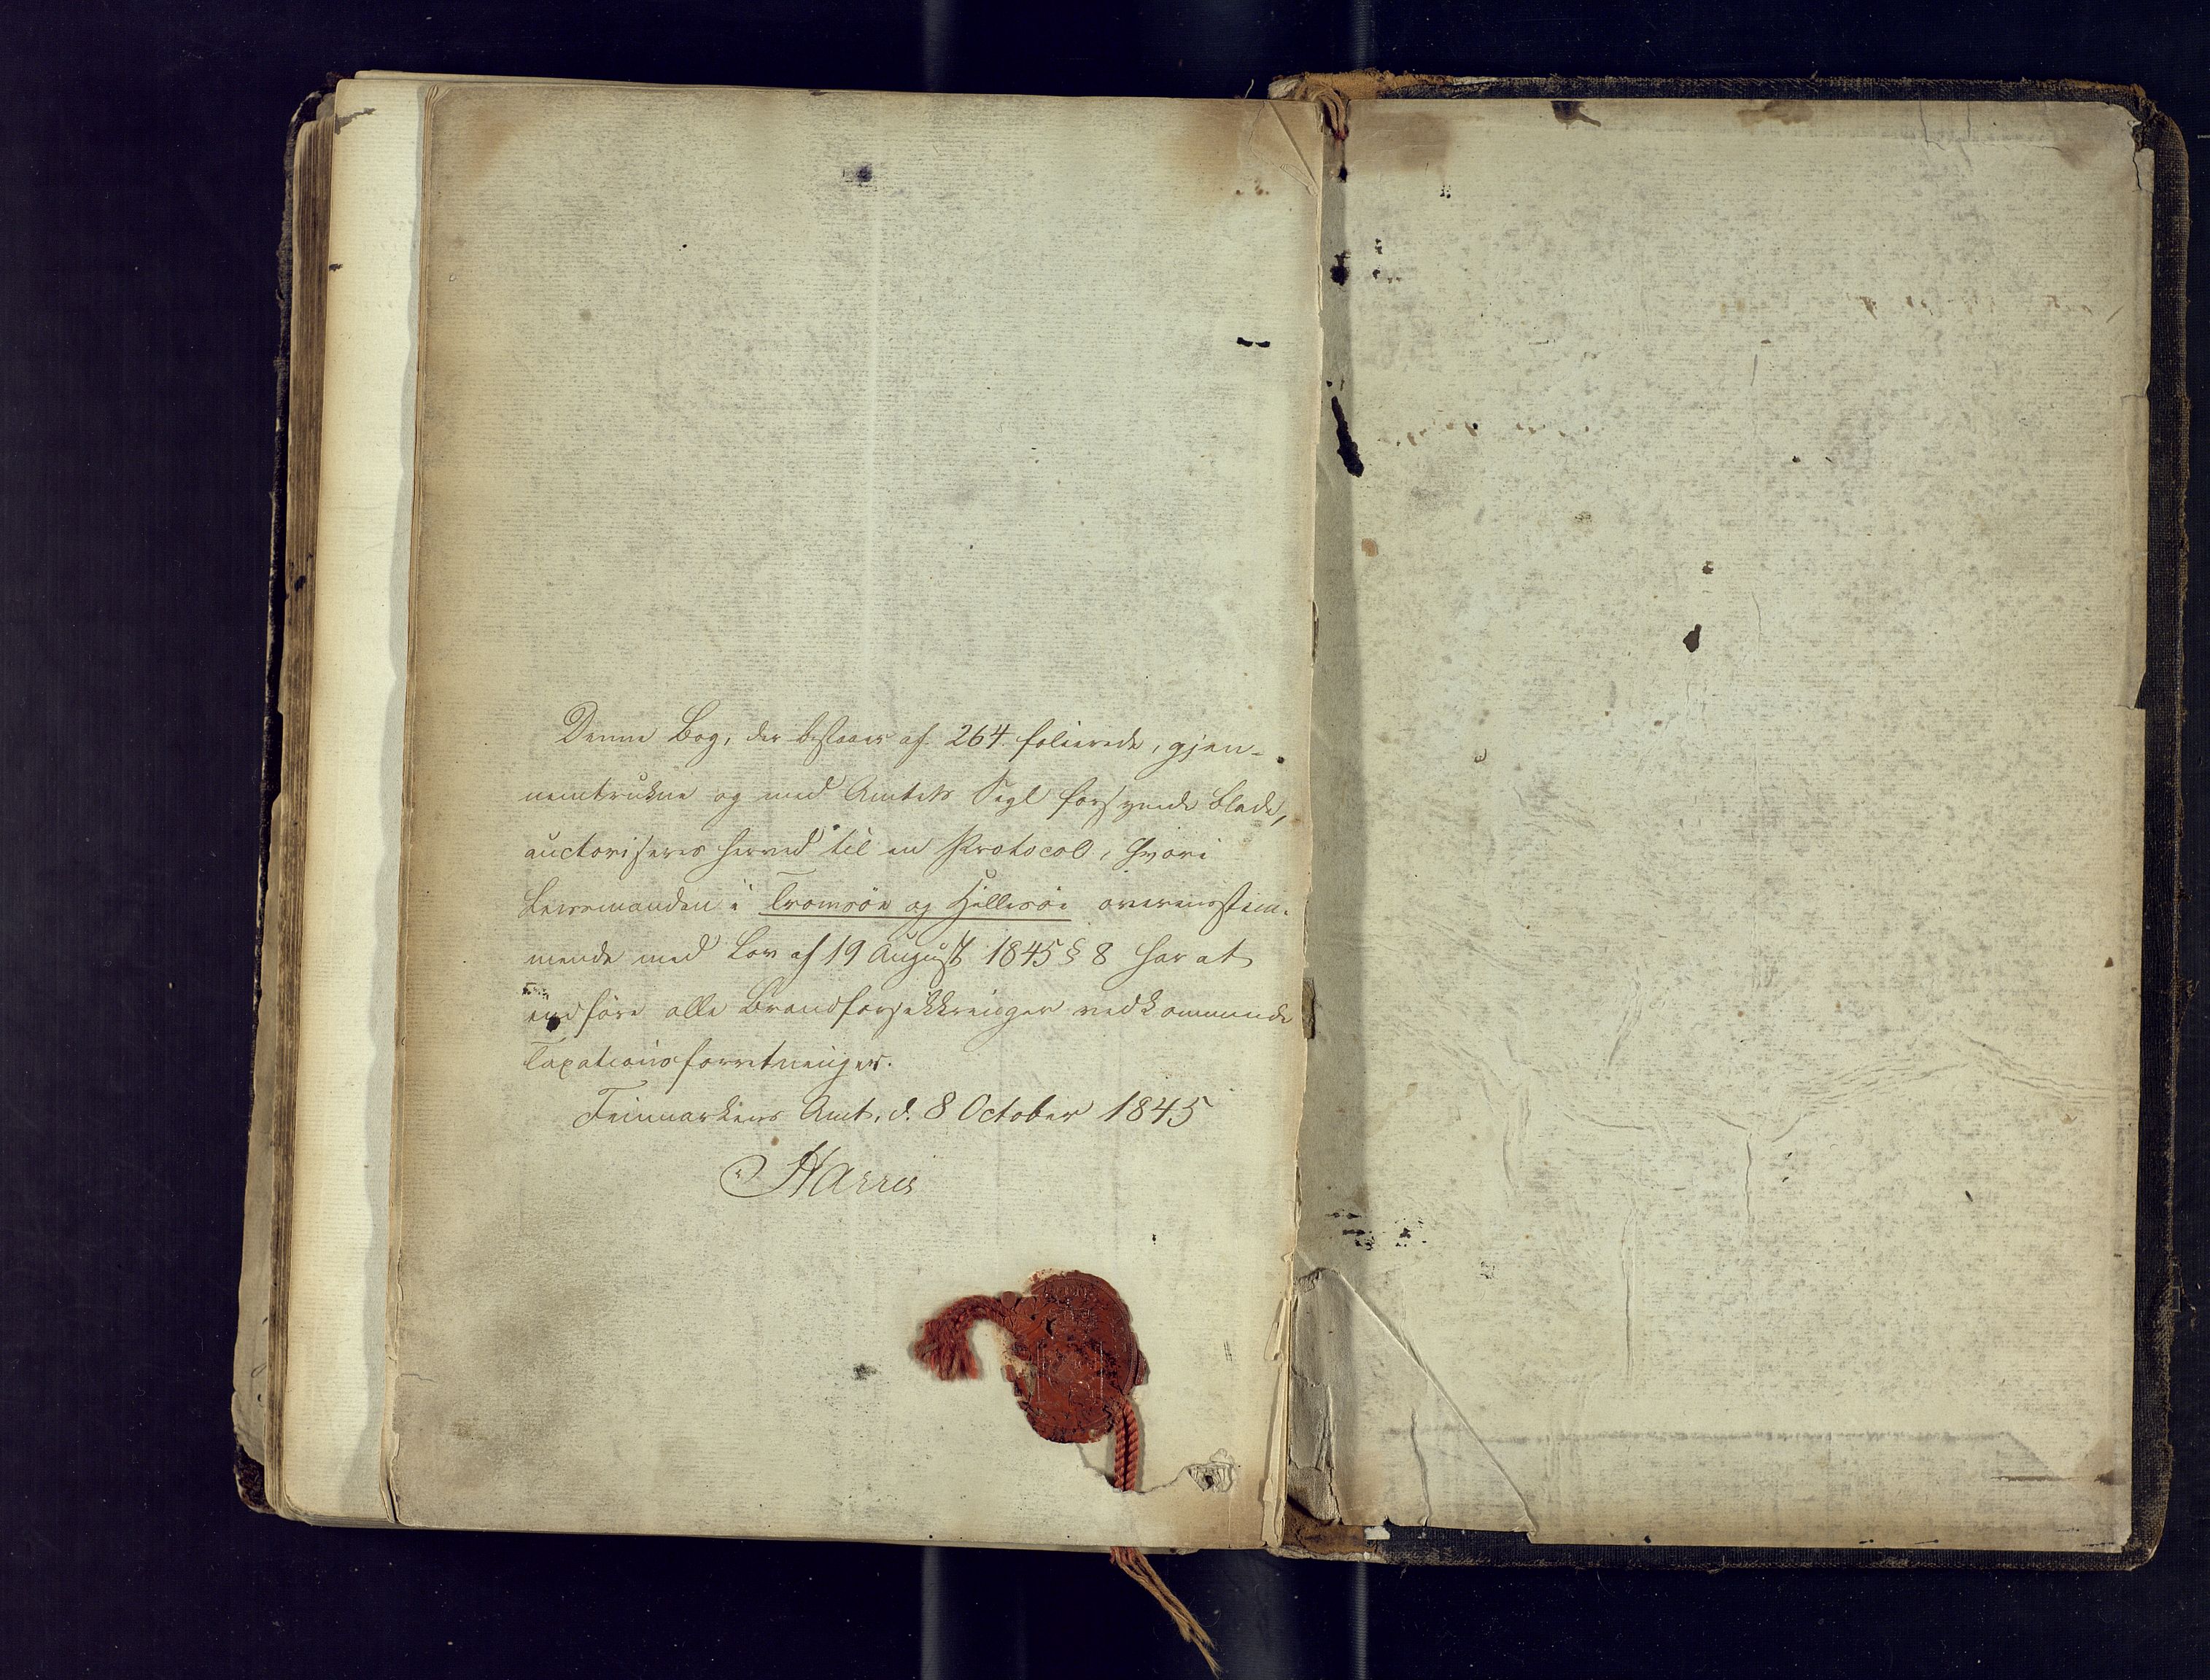 Denne Bog, der bestaaer af 264 folierede, gjen-
nemtrukne og med Amtets Segl forsynede Blade,
auctoriseres herved til en Protocol, hvori
Lensmanden i Tromsöe og Hillesöe overeensstem-
mende med Lov af 19 August 1845 § 8 har at
indföre alle Brandforsikkringer vedkommende
Taxationsforretninger.
Finmarkens Amt, d. 8 October 1845
Harris